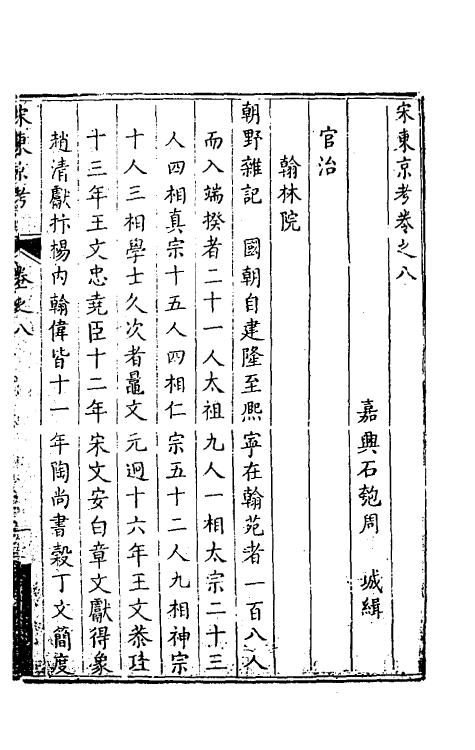 宋東京考卷之八
嘉興石匏周　城緝
官治
翰林院
朝野雜記　國朝自建隆至熈寧在翰苑者一百八人
而入端揆者二十一人太祖九人一相太宗二十三
人四相真宗十五人四相仁宗五十二人九相神宗
十人三相學士久次者鼂文元迥十六年王文恭珪
十三年王文忠堯臣十二年宋文安白章文獻得象
趙清獻抃楊內翰偉皆十一年陶尚書穀丁文簡度
宋東京考
卷之八